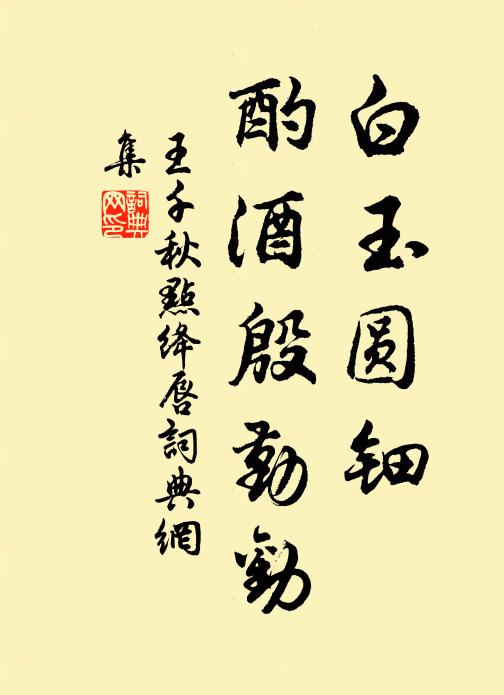 白玉圆钿
酌酒殷勤劝
王千秋點绛唇詞典網
集
詞典網印